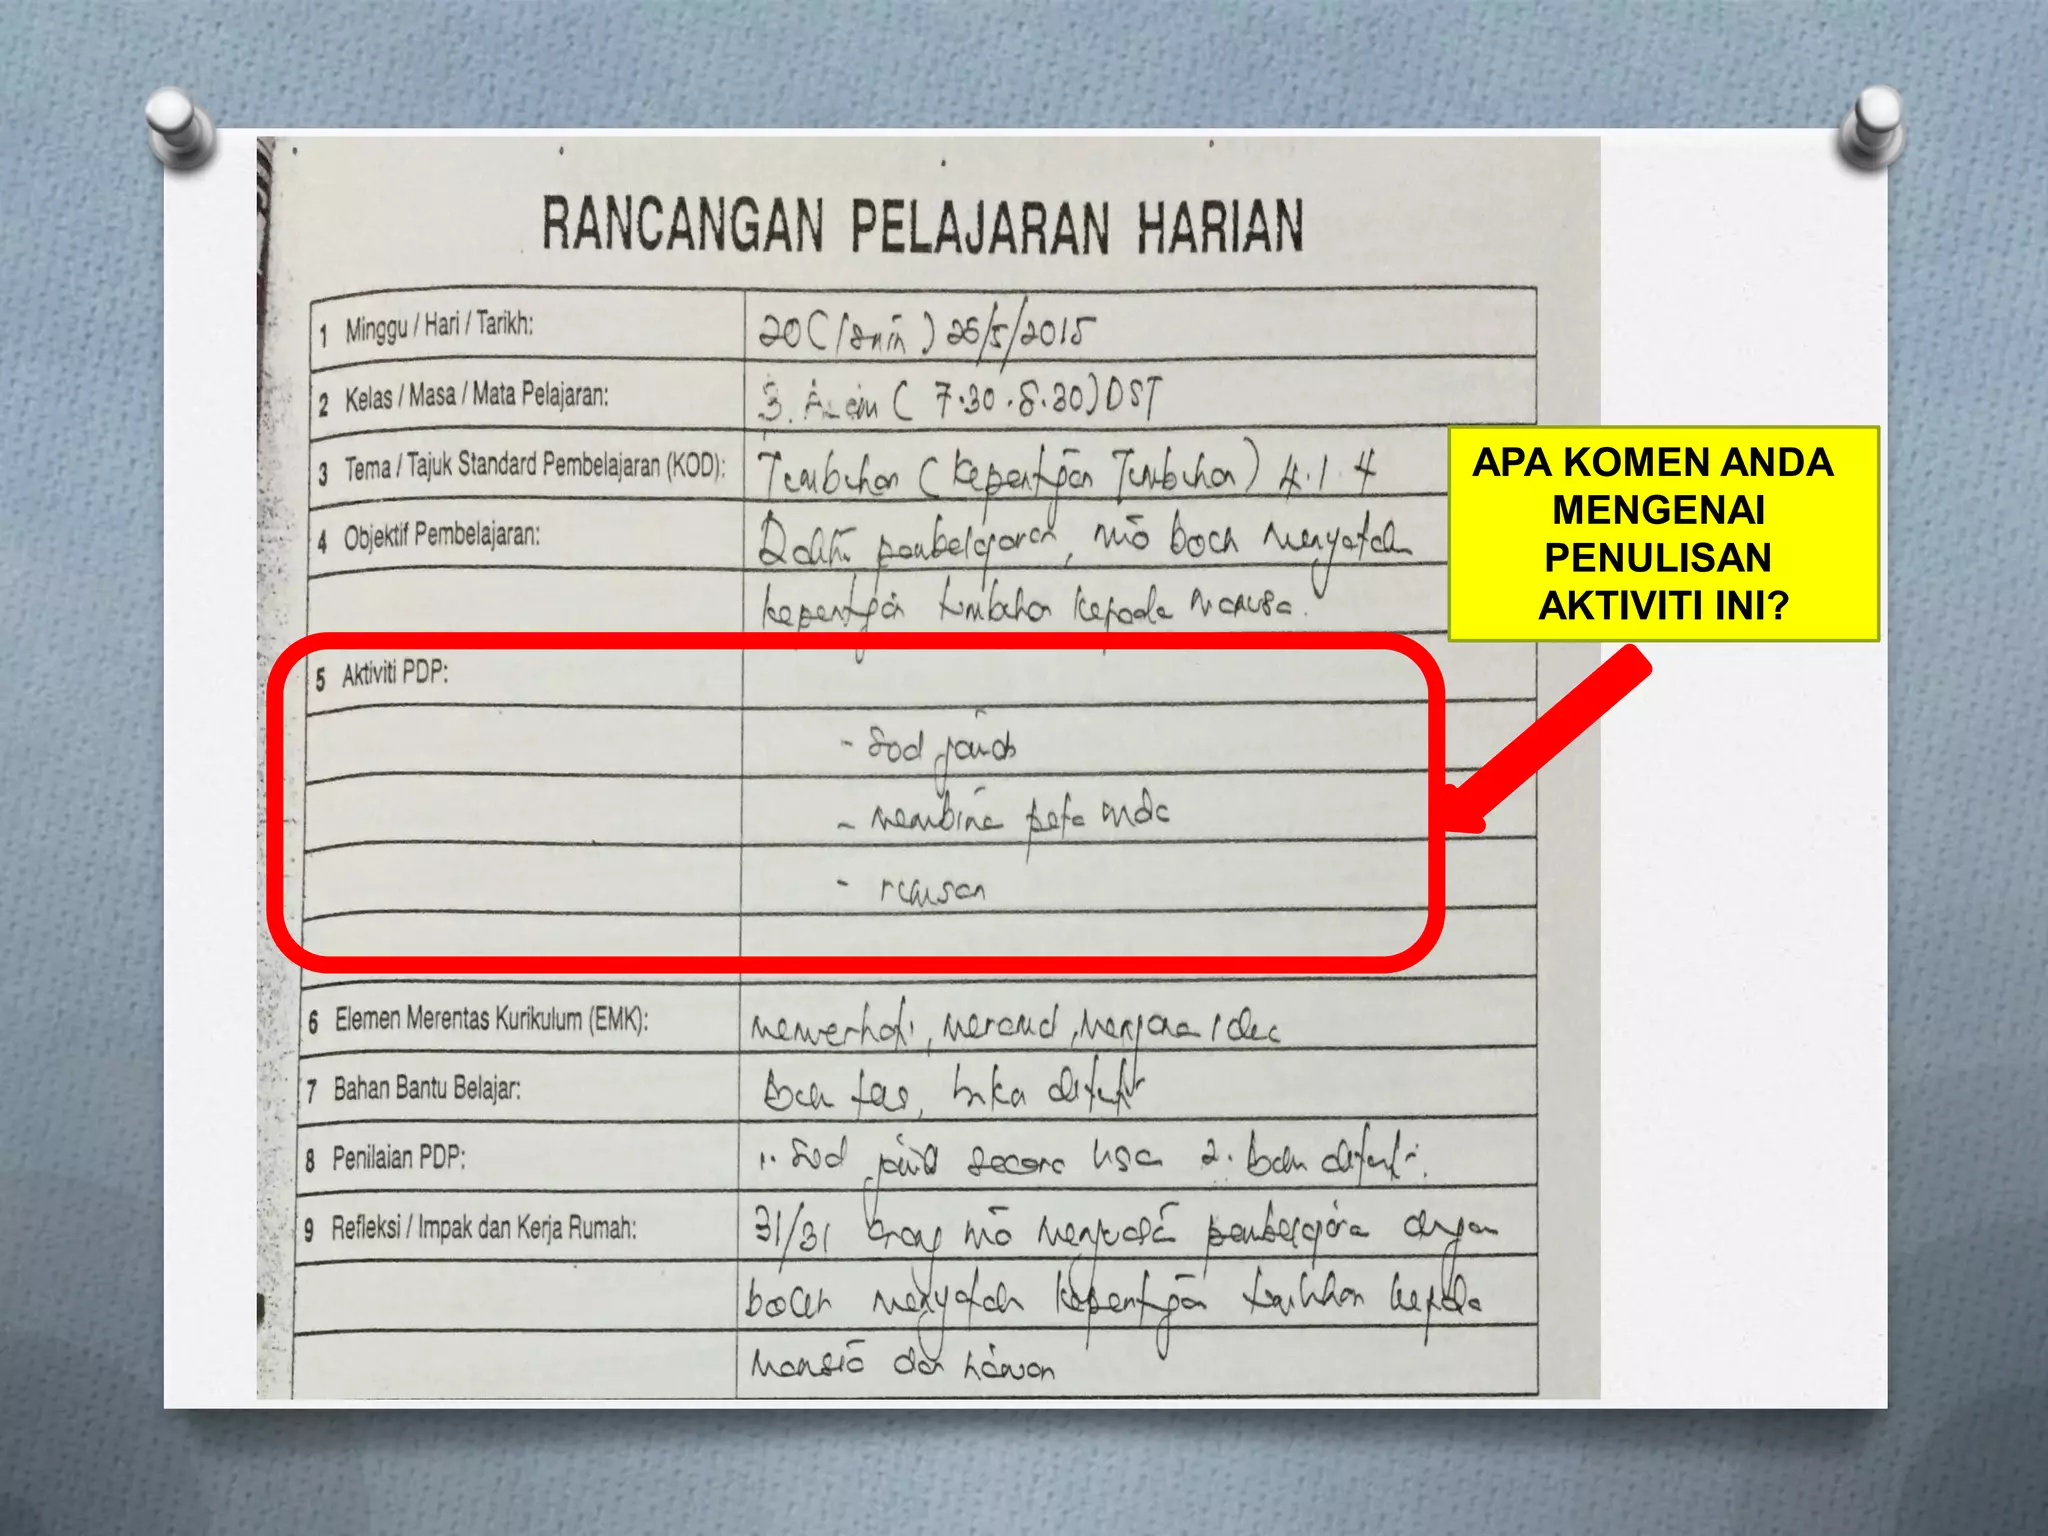 RANCANGAN PELAJARAN HARIAN
1 Minggu / Hari / Tarikh: 20 (Isnin) 25/5/2015
2 Kelas / Masa / Mata Pelajaran: 3. (7.30 - 8.30) DST
3 Tema / Tajuk Standard Pembelajaran (KOD): Tumbuhan (Kepentgan Tumbuhan) 4.1.4
4 Objektif Pembelajaran: pembelajaran, boleh menyatakan
kepentgan tumbuhan kepada manusia.
5 Aktiviti PDP:
- Soal jawab
- membina peta minda
- rumusan
6 Elemen Merentas Kurikulum (EMK): memerhati, meramal, menjana idea
7 Bahan Bantu Belajar: buku
8 Penilaian PDP: 1. Soal jawab secara lisan 2.
9 Refleksi / Impak dan Kerja Rumah: 31/31 orang pembelajaran dengan
boleh menyatakan kepentgan tumbuhan kepada
manusia dan haiwan
APA KOMEN ANDA
MENGENAI
PENULISAN
AKTIVITI INI?